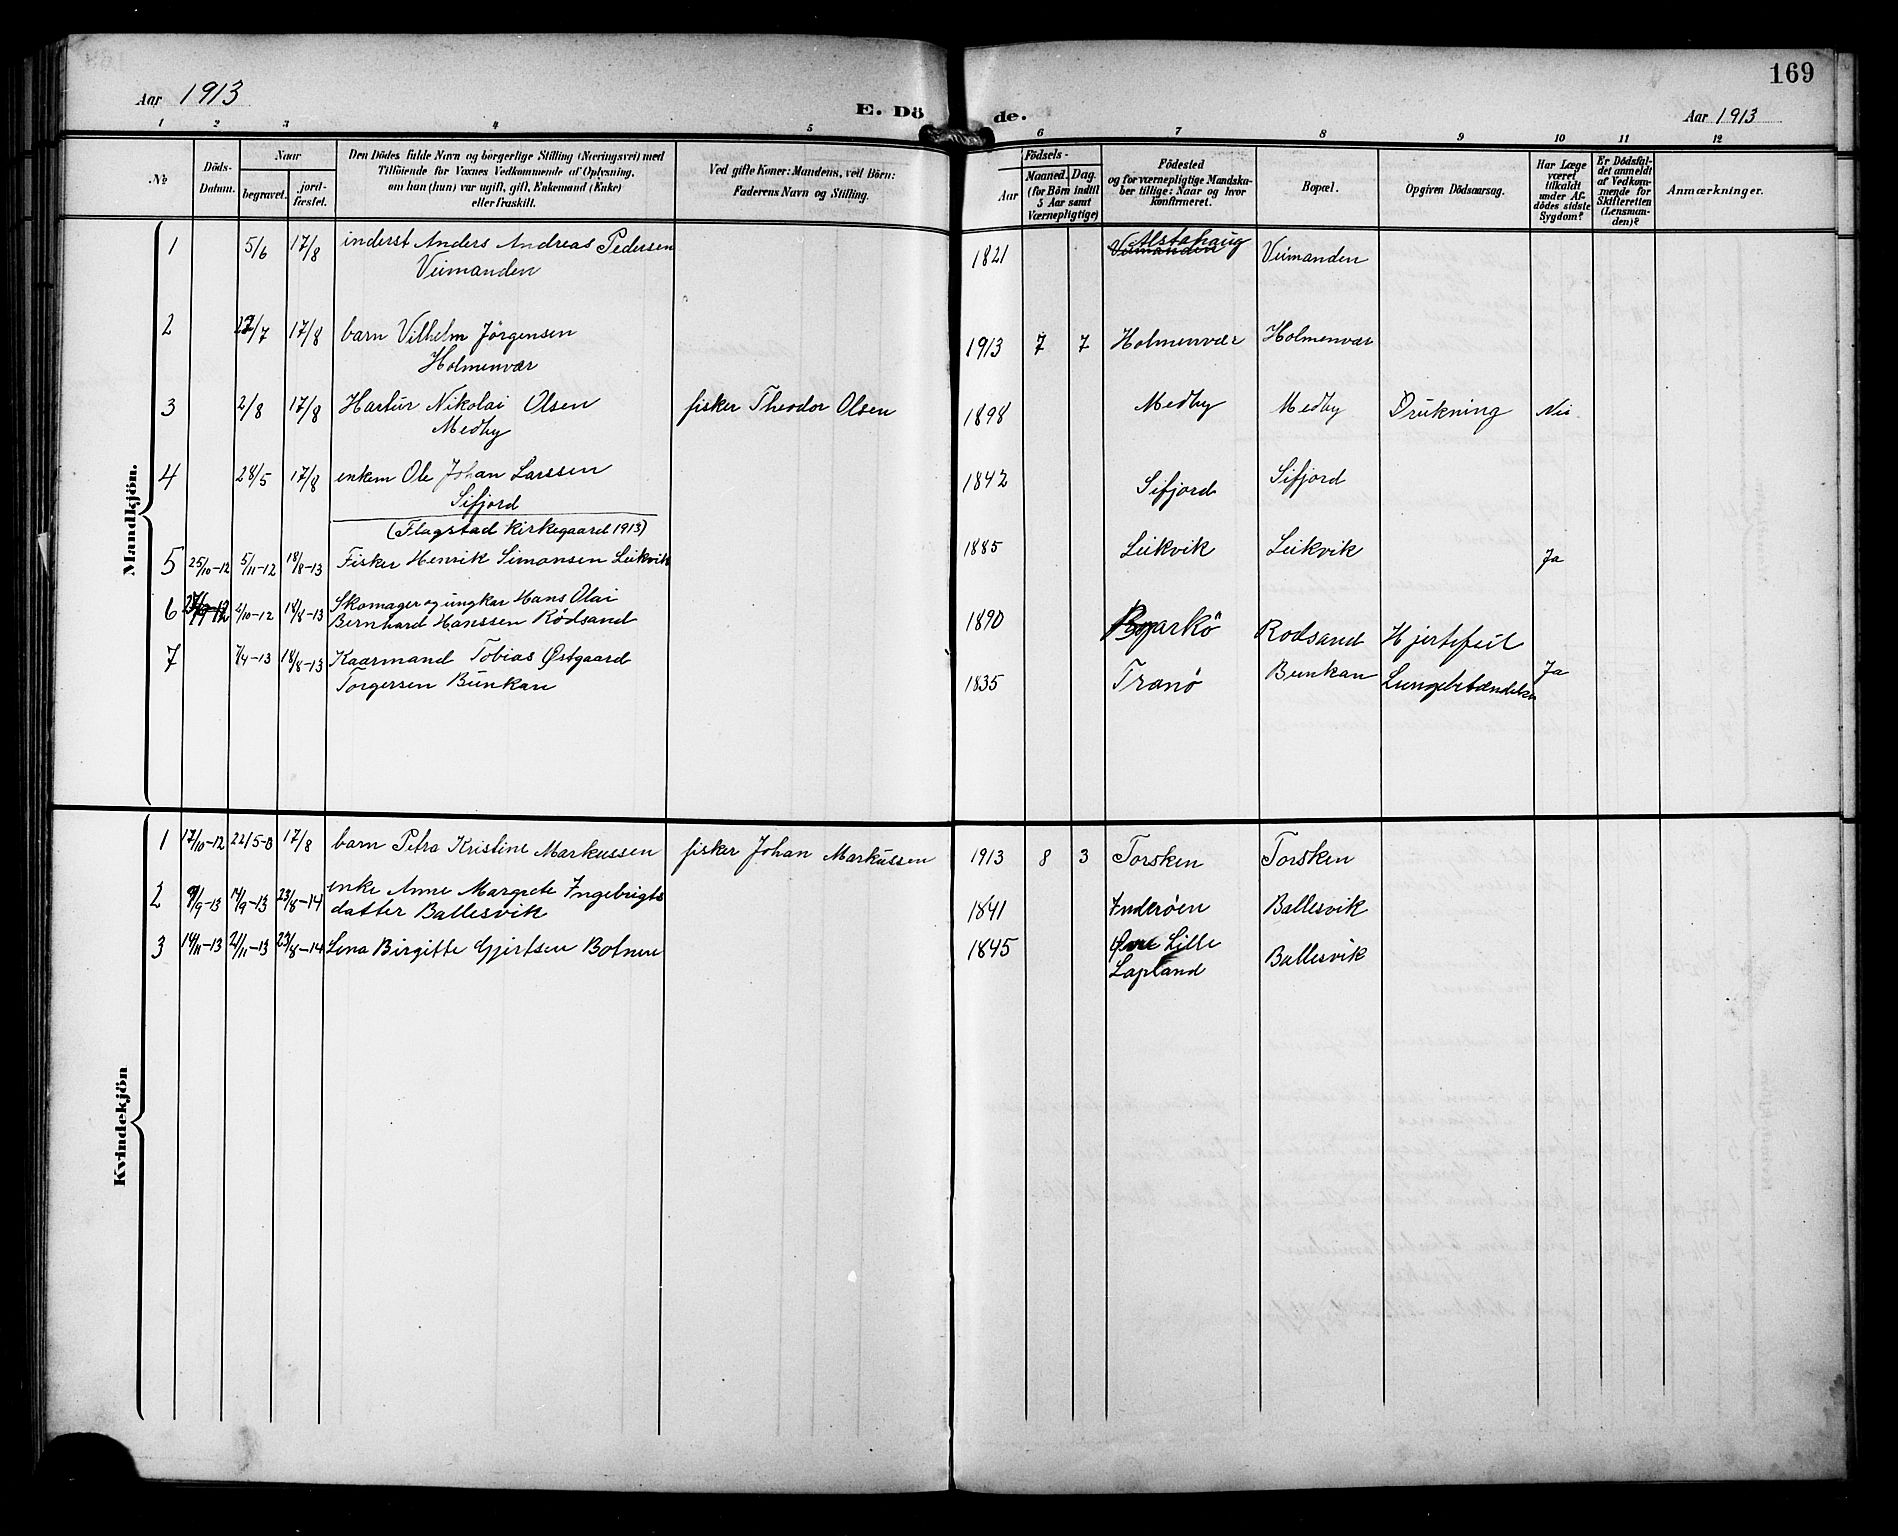 169
Aar 1913
E. Döde.
Aar 1913
1 2 3 4 5 6 7 8 9 10 11 12
No
Döds-Datum.
Naar
begravet.
jord-fæstet.
Den Dödes fulde Navn og borgerlige Stilling (Næringsvei) med
Tilföiende for Voxnes Vedkommende af Oplysning,
om han (hun) var ugift, gift, Enkemand (Enke)
eller fraskilt.
Ved gifte Koner: Mandens, ved Börn:
Faderens Navn og Stilling.
Födsels-
Aar
Maaned. Dag.
(for Börn indtil
5 Aar samt
Værnepligtige)
Födested
og for værnepligtige Mandska-
ber tillige: Naar og hvor
Konfirmeret.
Bopæl.
Opgiven Dödsaarsag.
Har Læge
været
tilkaldt
under Af-
dödes sidste
Sygdom?
Er Dödsfal-
det anmeldt
af Vedkom-
mende for
Skifteretten
(Lensman-
den)?
Anmærkninger.
Mandkjön.
1 5/6 17/8 inderst Anders Andreas Pedersen 1821 Alstahaug Veimanden
Veimanden
2 /7 17/8 barn Vilhelm Jörgensen 1913 7 7 Holmenvær Holmenvær
Holmenvær
3 2/8 17/8 Hartur Nikolai Olsen fisker Theodor Olsen 1898 Medby Medby Drukning Nei
Medby
4 28/5 17/8 enkem Ole Johan Larssen 1842 Sifjord Sifjord
Sifjord
(Flagstad Kirkegaard 1913)
5 25/10-12 5/11-12 18/8-13 Fisker Henrik Simonsen Leikvik 1885 Leikvik Leikvik Ja
6 2/10-12 18/8-13 Skomager og ungkar Hans Olai
Bernhard Hanssen Rødsand 1890 Bjarkö Rodsand Hjertefeil
7 7/4-13 18/8-13 Kaarmand Tobias Østgaard
Torgersen Bunkan 1835 Tranø Bunkan Lungebetændelse Ja
Kvindekjön
1 17/10-12 22/5-13 17/8 barn Petra Kristine Markussen fisker Johan Markussen 1913 8 3 Torsken Torsken
2 9/9-13 14/9-13 23/8-14 enke Anne Margrete Ingebrigts
datter Ballesvik 1841 Inderøen Ballesvik
3 14/11-13 21/11-13 23/8-14 Lena Birgitte Gjertsen Botnen 1845 Øvre Lille
Lapland Ballesvik